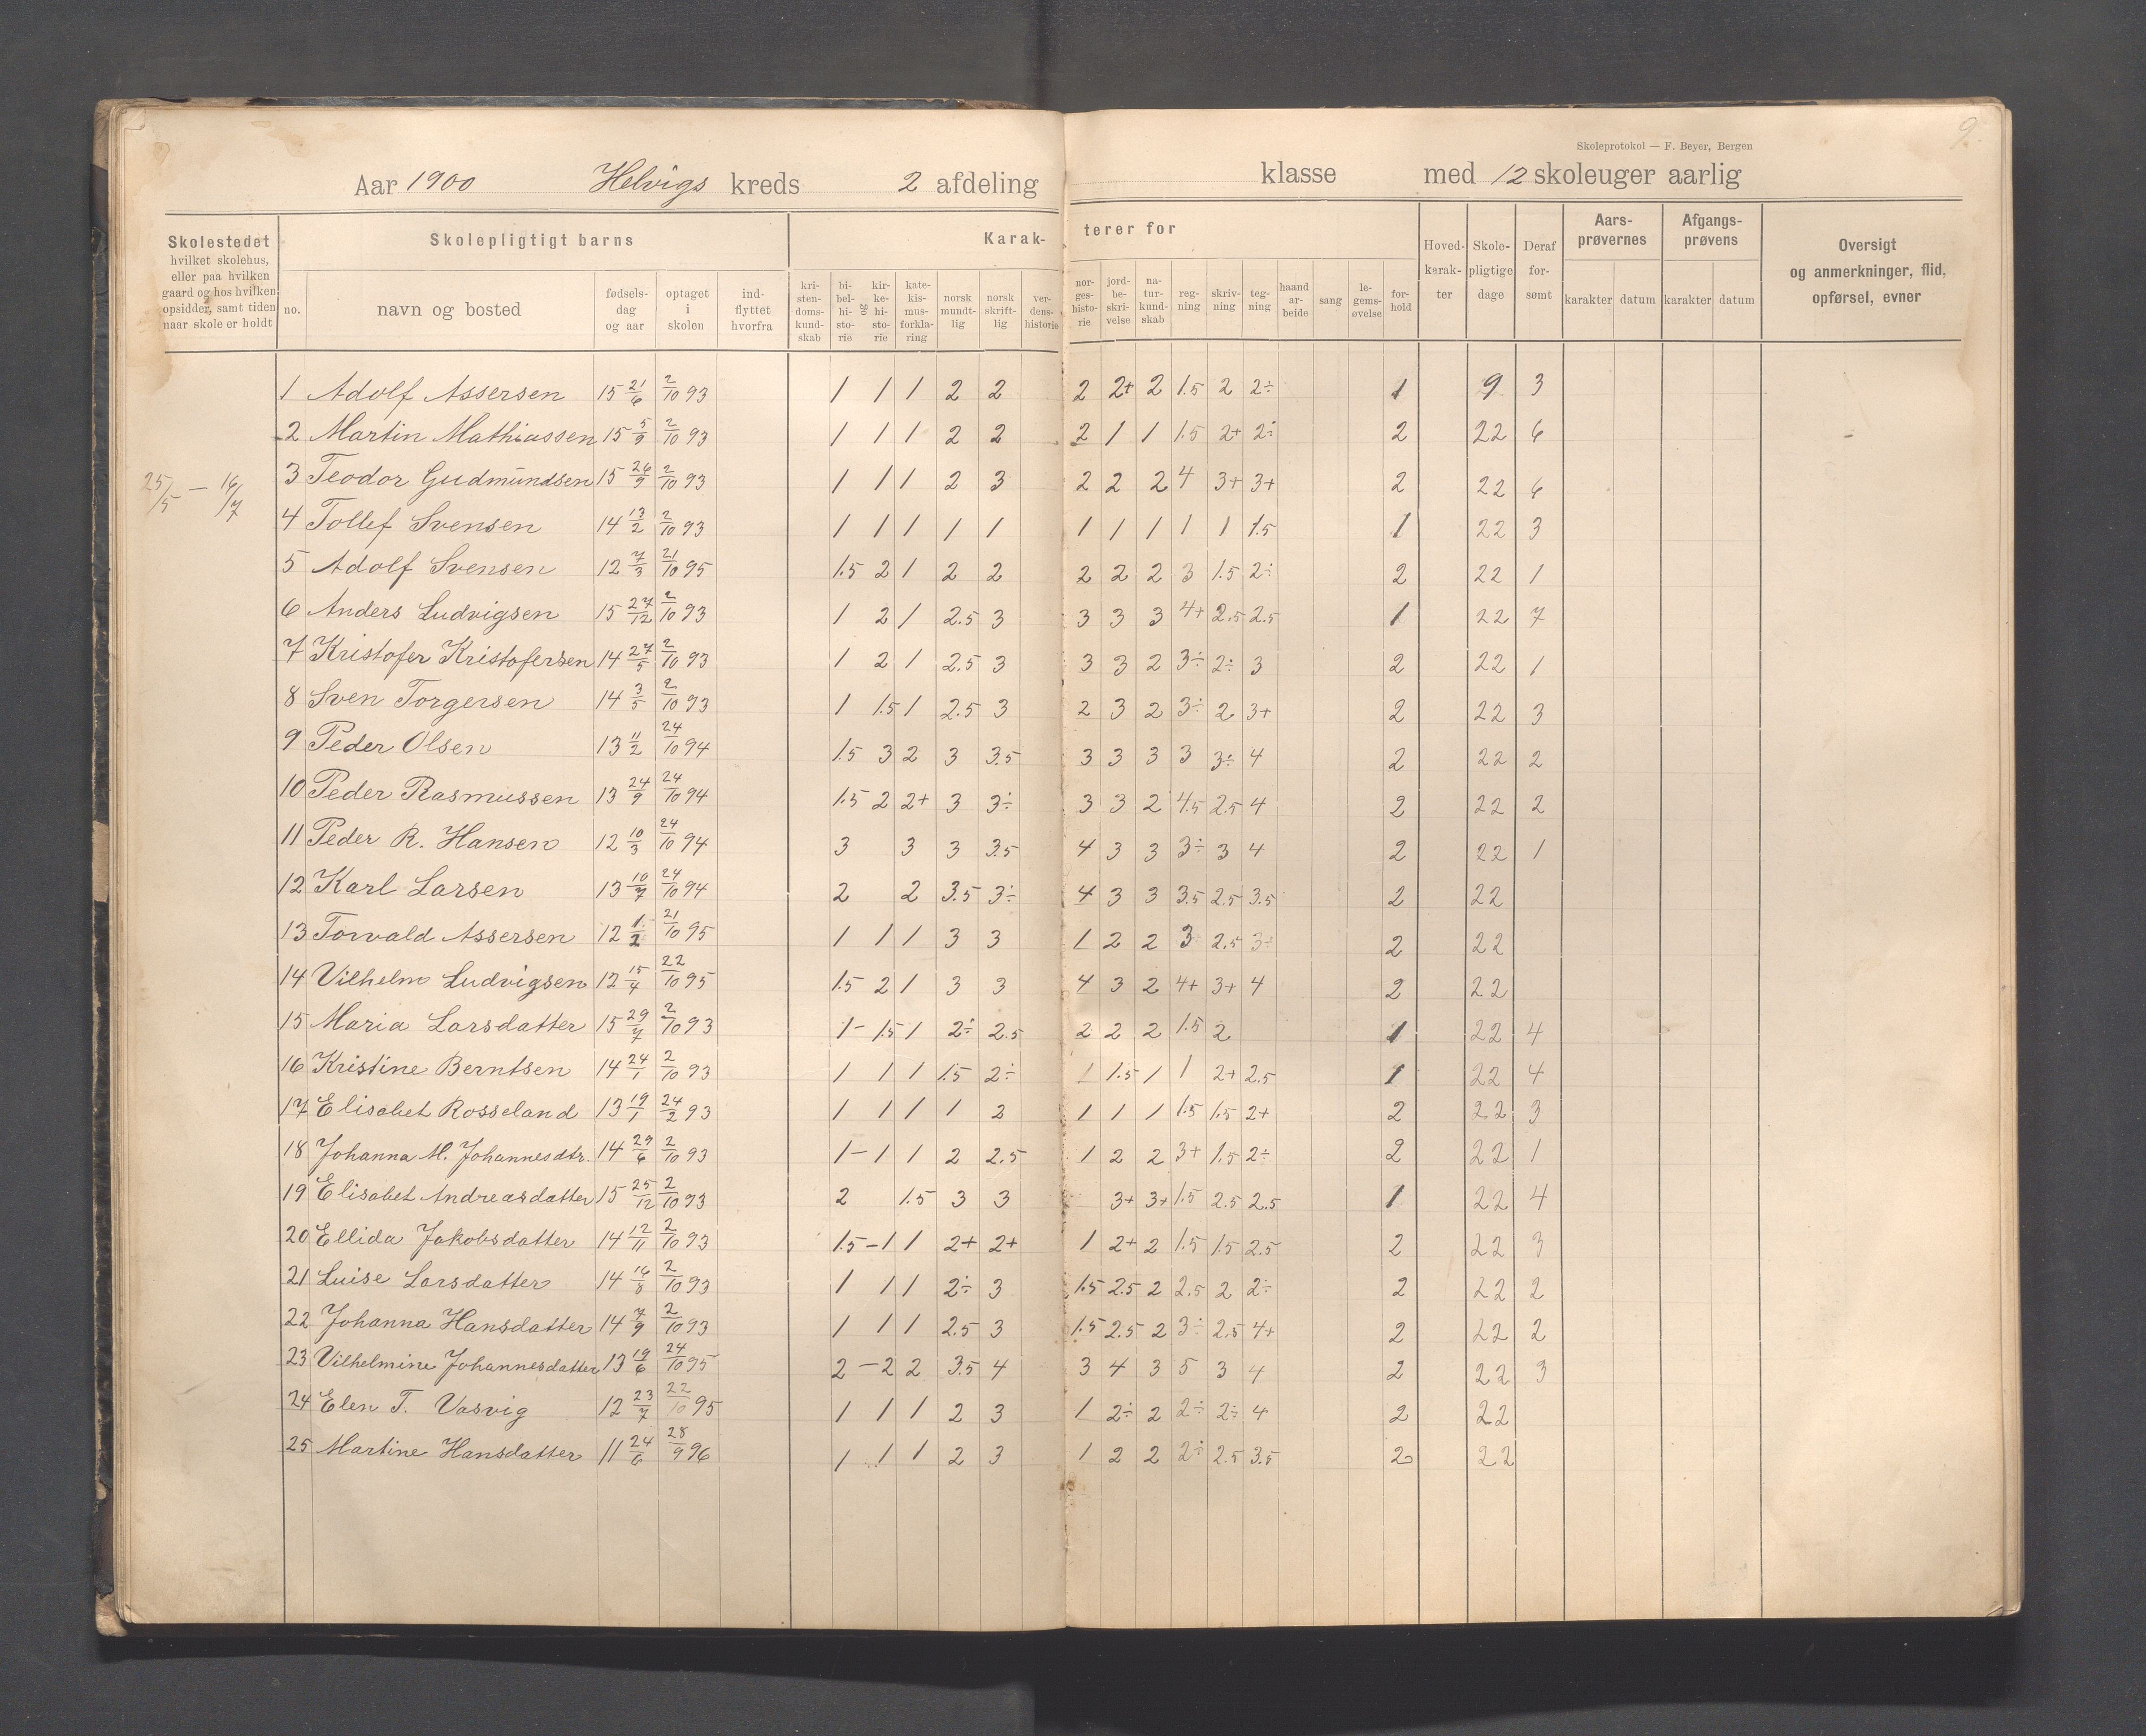 9.
Skoleprotokol — F. Beyer, Bergen
Aar 1900 Helvigs kreds 2 afdeling klasse med 12 skoleuger aarlig
Skolestedet hvilket skolehus, eller paa hvilken gaard og hos hvilken opsidder, samt tiden naar skole er holdt
Skolepligtigt barns
no. navn og bosted fødsels-dag og aar optaget i skolen ind-flyttet hvorfra
Karak-terer for
kri-sten-doms-kund-skab bi-bel-hi-sto-rie og kir-ke-hi-sto-rie kate-kis-mus-forkla-ring norsk mundt-lig norsk skrift-lig ver-dens-historie nor-ges-histo-rie jord-be-skri-velse na-tur-kund-skab reg-ning skriv-ning teg-ning haand ar-beide sang le-gems-øvelse for-hold
Hoved-karak-ter Skole-pligtige dage Deraf for-sømt
Aars-prøvernes karakter datum
Afgangs-prøvens karakter datum
Oversigt og anmerkninger, flid, opførsel, evner
1 Adolf Assersen 15 21/6 2/10 93 1 1 1 2 2 2 2+ 2 1.5 2 2÷ 1 9 3
2 Martin Mathiassen 15 5/9 2/10 93 1 1 1 2 2 2 1 1 1.5 2+ 2÷ 2 22 6
25/5 — 16/7
3 Teodor Gudmundsen 15 26/9 2/10 93 1 1 1 2 3 2 2 2 4 3+ 3+ 2 22 6
4 Tollef Svensen 14 13/2 2/10 93 1 1 1 1 1 1 1 1 1 1 1.5 1 22 3
5 Adolf Svensen 12 7/3 21/10 95 1.5 2 1 2 2 2 2 2 3 1.5 2÷ 2 22 1
6 Anders Ludvigsen 15 27/12 2/10 93 1 2 1 2.5 3 3 3 3 4+ 2.5 2.5 1 22 7
7 Kristofer Kristofersen 14 27/5 2/10 93 1 2 1 2.5 3 3 3 2 3÷ 2÷ 3 2 22 1
8 Sven Torgersen 14 3/5 2/10 93 1 1.5 1 2.5 3 2 3 2 3÷ 2 3+ 2 22 3
9 Peder Olsen 13 11/2 24/10 94 1.5 3 2 3 3.5 3 3 3 3 3÷ 4 2 22 2
10 Peder Rasmussen 13 24/9 24/10 94 1.5 2 2+ 3 3÷ 3 3 2 4.5 2.5 4 2 22 2
11 Peder R. Hansen 12 10/3 24/10 94 3 3 3 3.5 4 3 3 3÷ 3 4 2 22 1
12 Karl Larsen 13 10/7 24/10 94 2 2 3.5 3÷ 4 3 3 3.5 2.5 3.5 2 22
13 Torvald Assersen 12 1/2 21/10 95 1 1 1 3 3 1 2 2 3 2.5 3÷ 2 22
14 Vilhelm Ludvigsen 12 15/4 22/10 95 1.5 2 1 3 3 4 3 2 4+ 3+ 4 2 22
15 Maria Larsdatter 15 29/7 2/10 93 1 - 1.5 1 2÷ 2.5 2 2 2 1.5 2 1 22 4
16 Kristine Berntsen 14 24/1 2/10 93 1 1 1 1.5 2÷ 1 1.5 1 1 2+ 2.5 1 22 4
17 Elisabet Rosseland 13 19/1 24/2 93 1 1 1 1 2 1 1 1 1.5 1.5 2+ 2 22 3
18 Johanna M. Johannesdtr. 14 29/6 2/10 93 1 - 1 1 2 2.5 1 2 2 3+ 1.5 2÷ 2 22 1
19 Elisabet Andreasdatter 15 25/12 2/10 93 2 1.5 3 3 3+ 3+ 1.5 2.5 2.5 1 22 4
20 Ellida Jakobsdatter 14 12/11 2/10 93 1.5 - 1 1 2+ 2+ 1 2+ 2 1.5 1.5 2.5 2 22 3
21 Luise Larsdatter 14 16/8 2/10 93 1 1 1 2÷ 3 1.5 2.5 2 2.5 2 2÷ 2 22 2
22 Johanna Hansdatter 14 7/9 2/10 93 1 1 1 2.5 3 1.5 2.5 2 3÷ 2.5 4+ 2 22 2
23 Vilhelmine Johannesdatter 13 19/6 24/10 95 2 - 2 2 3.5 4 3 4 3 5 3 4 2 22 3
24 Elen T. Vasvig 12 23/7 22/10 95 1 1 1 2 3 1 2÷ 2 2÷ 2÷ 4 2 22
25 Martine Hansdatter 11 24/6 28/9 96 1 1 1 2 3 1 2 2 2÷ 2.5 3.5 2 22